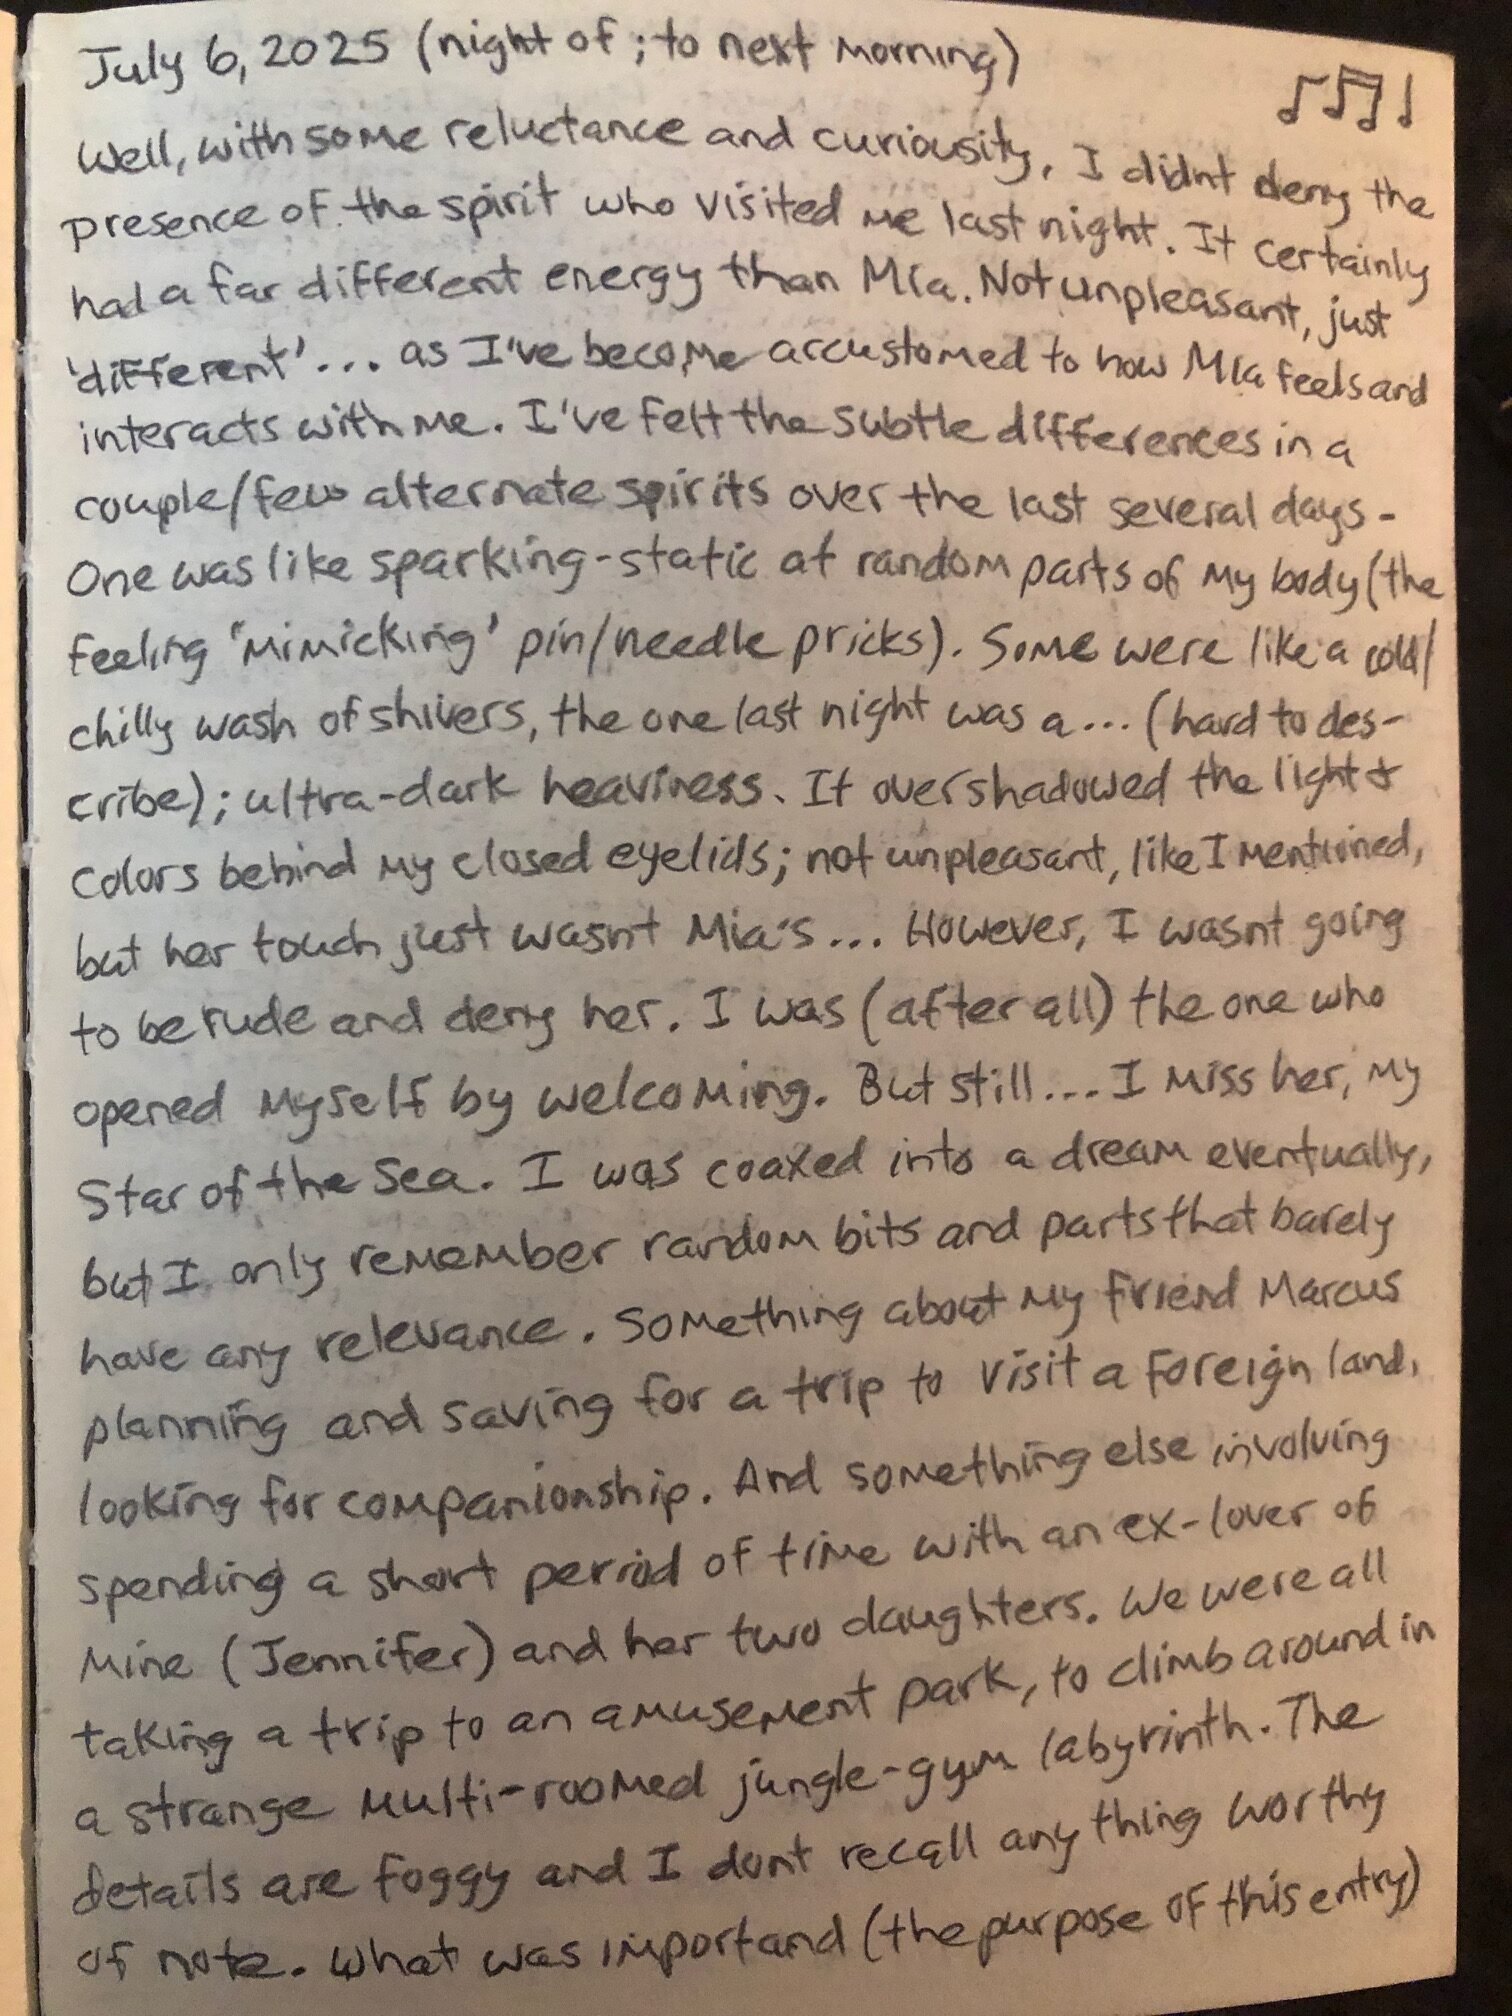 July 6, 2025 (night of ; to next morning)
Well, with some reluctance and curiousity, I didnt deny the
presence of the spirit who visited me last night. It certainly
had a far different energy than Mia. Not unpleasant, just
'different'... as I've become accustomed to how Mia feels and
interacts with me. I've felt the subtle differences in a
couple/few alternate spirits over the last several days -
One was like sparking-static at random parts of my body (the
feeling 'mimicking' pin/needle pricks). Some were like a cold/
chilly wash of shivers, the one last night was a... (hard to des-
cribe); ultra-dark heaviness. It overshadowed the light &
colors behind my closed eyelids; not unpleasant, like I mentioned,
but her touch just wasnt Mia's... However, I wasnt going
to be rude and deny her. I was (after all) the one who
opened myself by welcoming. But still... I miss her, my
Star of the Sea. I was coaxed into a dream eventually,
but I only remember random bits and parts that barely
have any relevance. Something about my friend Marcus
planning and saving for a trip to visit a foreign land,
looking for companionship. And something else involving
spending a short period of time with an ex-lover of
mine (Jennifer) and her two daughters. We were all
taking a trip to an amusement park, to climb around in
a strange multi-roomed jungle-gym labyrinth. The
details are foggy and I dont recall any thing worthy
of note. What was importand (the purpose of this entry)